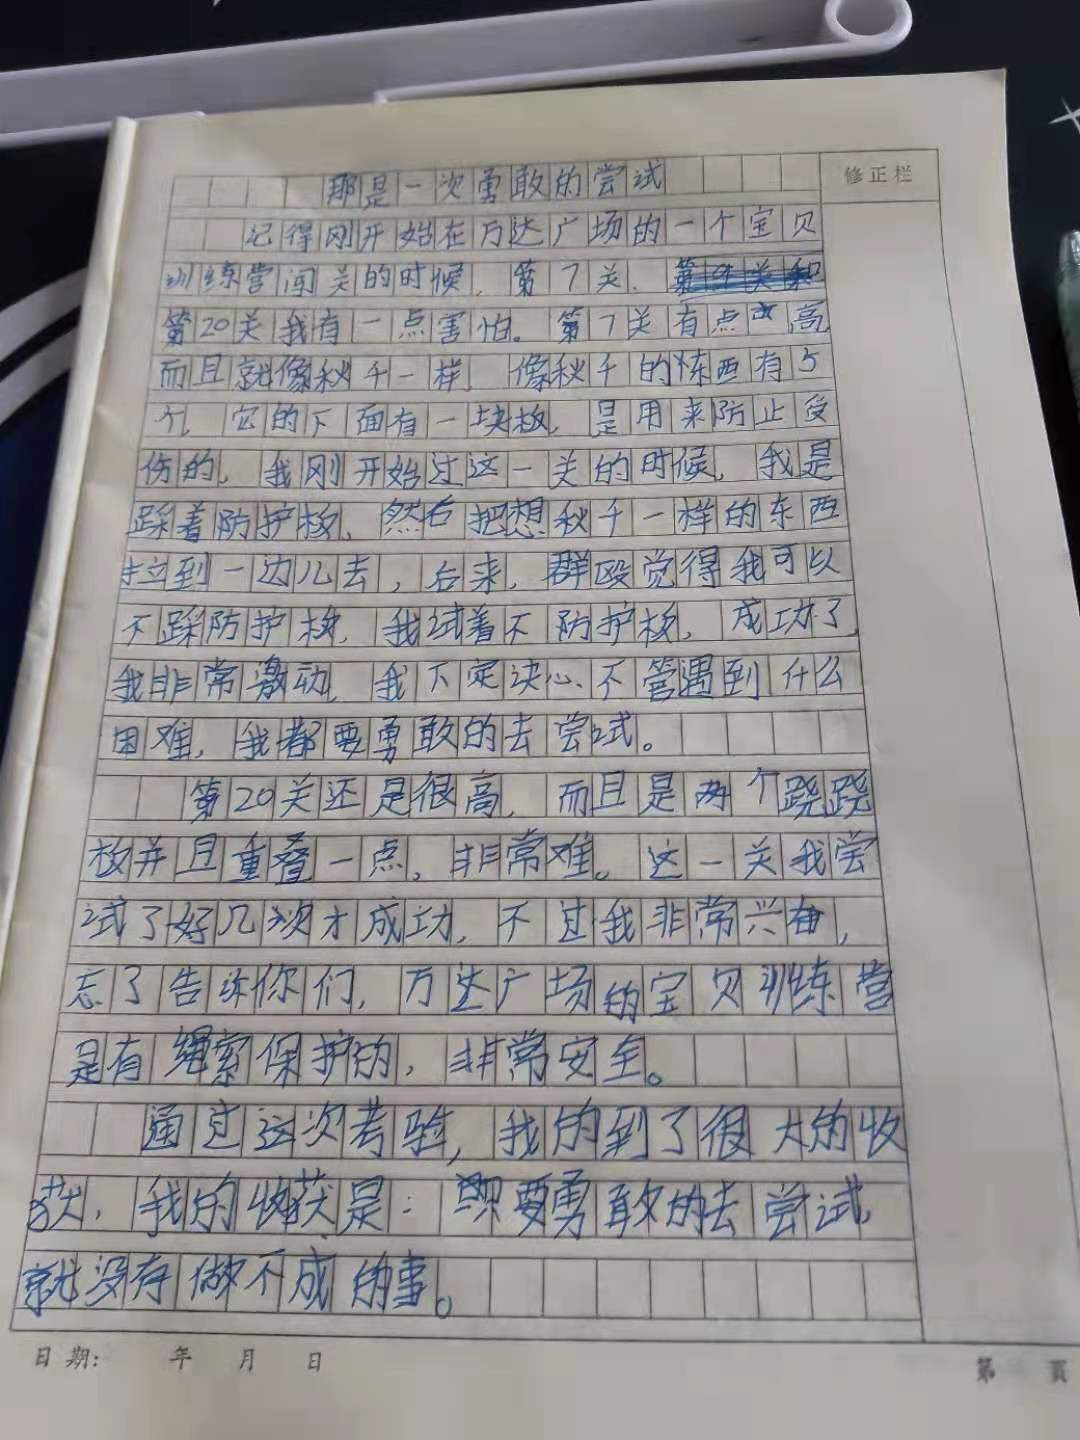 那是一次勇敢的尝试
修正栏
记得刚开始在万达广场的一个宝贝
训练营闯关的时候，第7关、
第20关我有一点害怕。第7关有点高
而且就像秋千一样，像秋千的东西有5
个，它的下面有一块板，是用来防止受
伤的，我刚开始过这一关的时候，我是
踩着防护板，然后把想秋千一样的东西
拉到一边儿去，后来，觉得我可以
不踩防护板，我试着不防护板，成功了，
我非常激动，我下定决心，不管遇到什么
困难，我都要勇敢的去尝试。
第20关还是很高，而且是两个跷跷
板并且重叠一点，非常难。这一关我尝
试了好几次才成功，不过我非常兴奋，
忘了告诉你们，万达广场的宝贝训练营
是有绳索保护的，非常安全。
通过这次考验，我的到了很大的收
获，我的收获是：只要勇敢的去尝试，
就没有做不成的事。
日期： 年 月 日
第 页